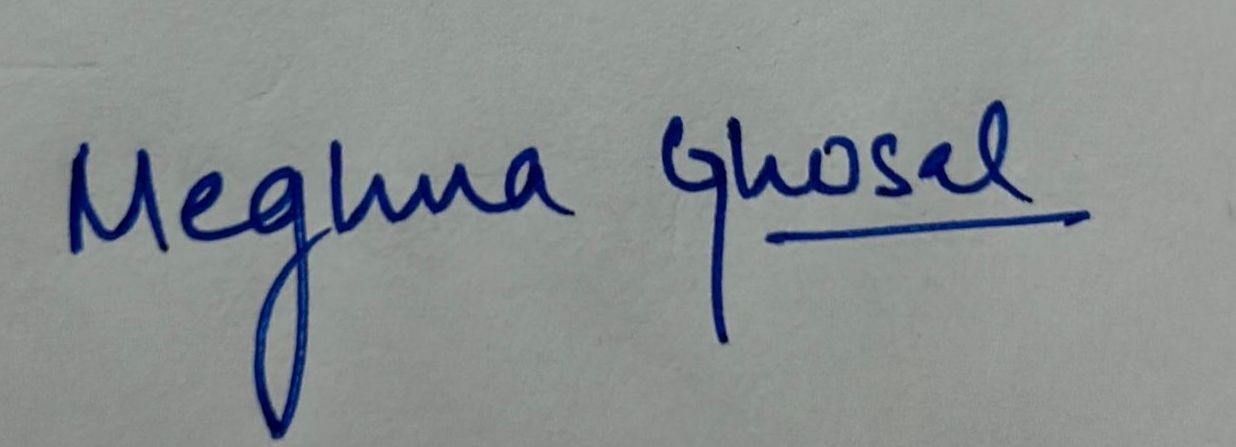 Meghna Ghosal